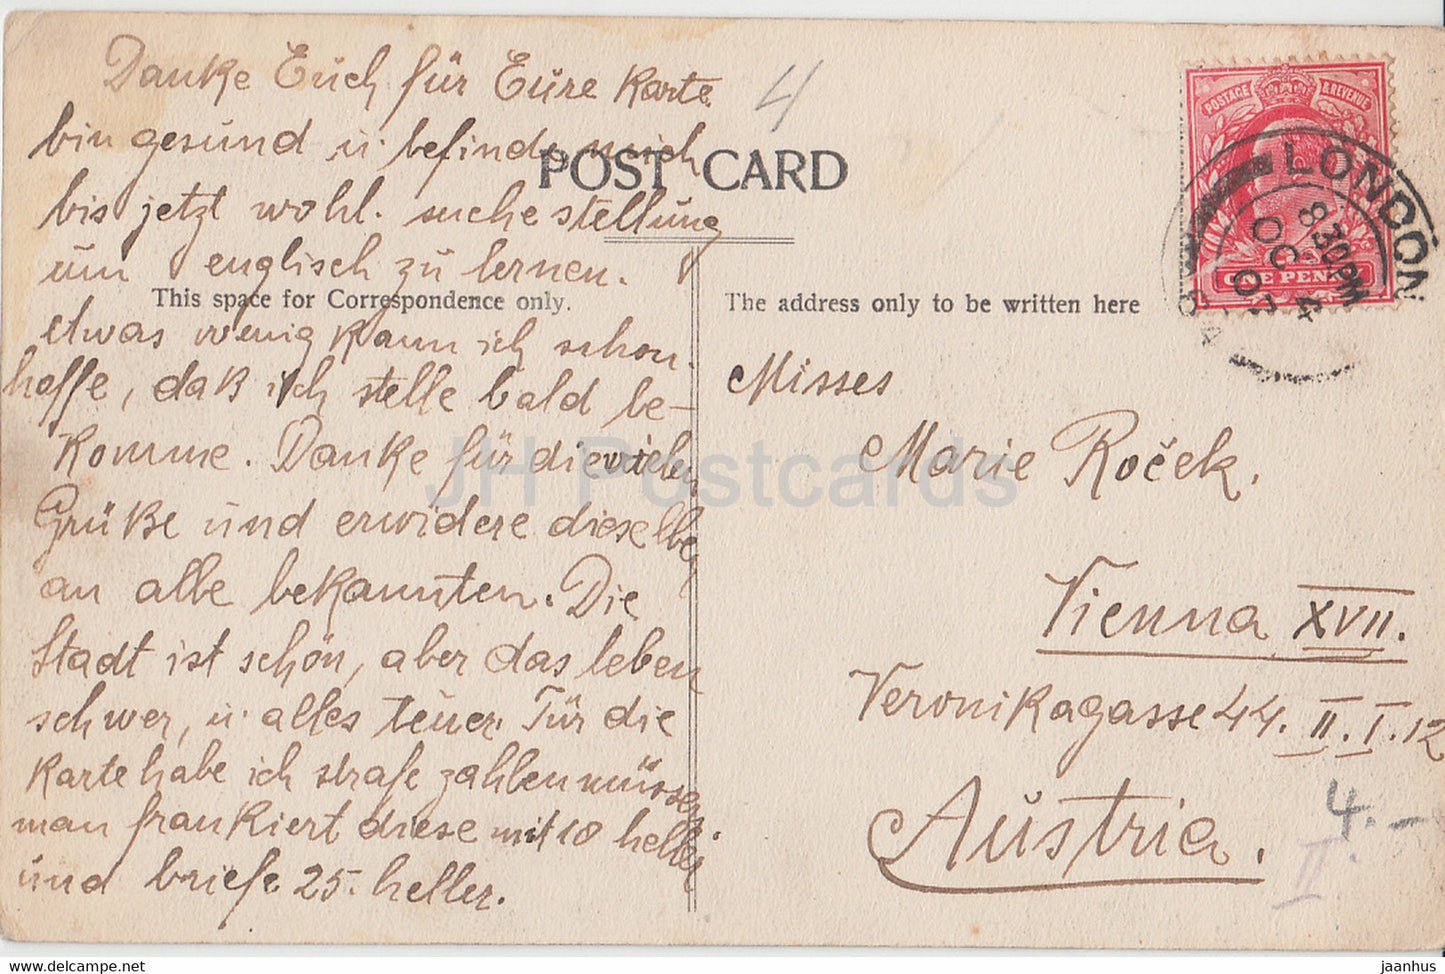 Danke Euch für Eure Karte
bin gesund u. befinde mich
bis jetzt wohl. suche stellung
um englisch zu lernen.
etwas wenig kann ich schon.
hoffe, daß ich stelle bald be-
komme. Danke für die vielen
Grüße und erwidere dieselben
an alle bekannten. Die
Stadt ist schön, aber das leben
schwer, u. alles teuer. Für die
Karte habe ich strafe zahlen müssen.
man frankiert diese mit 10 heller
und briefe 25. heller.
4
POST CARD
This space for Correspondence only.
The address only to be written here
POSTAGE & REVENUE
ONE PENNY
LONDON
8 30 PM
OC 4
07
Misses
Marie Roček.
Vienna XVII.
Veronikagasse 44. II. I. 12
Austria.
4.-
II
JH Postcards
www.delcampe.net
jaanhus